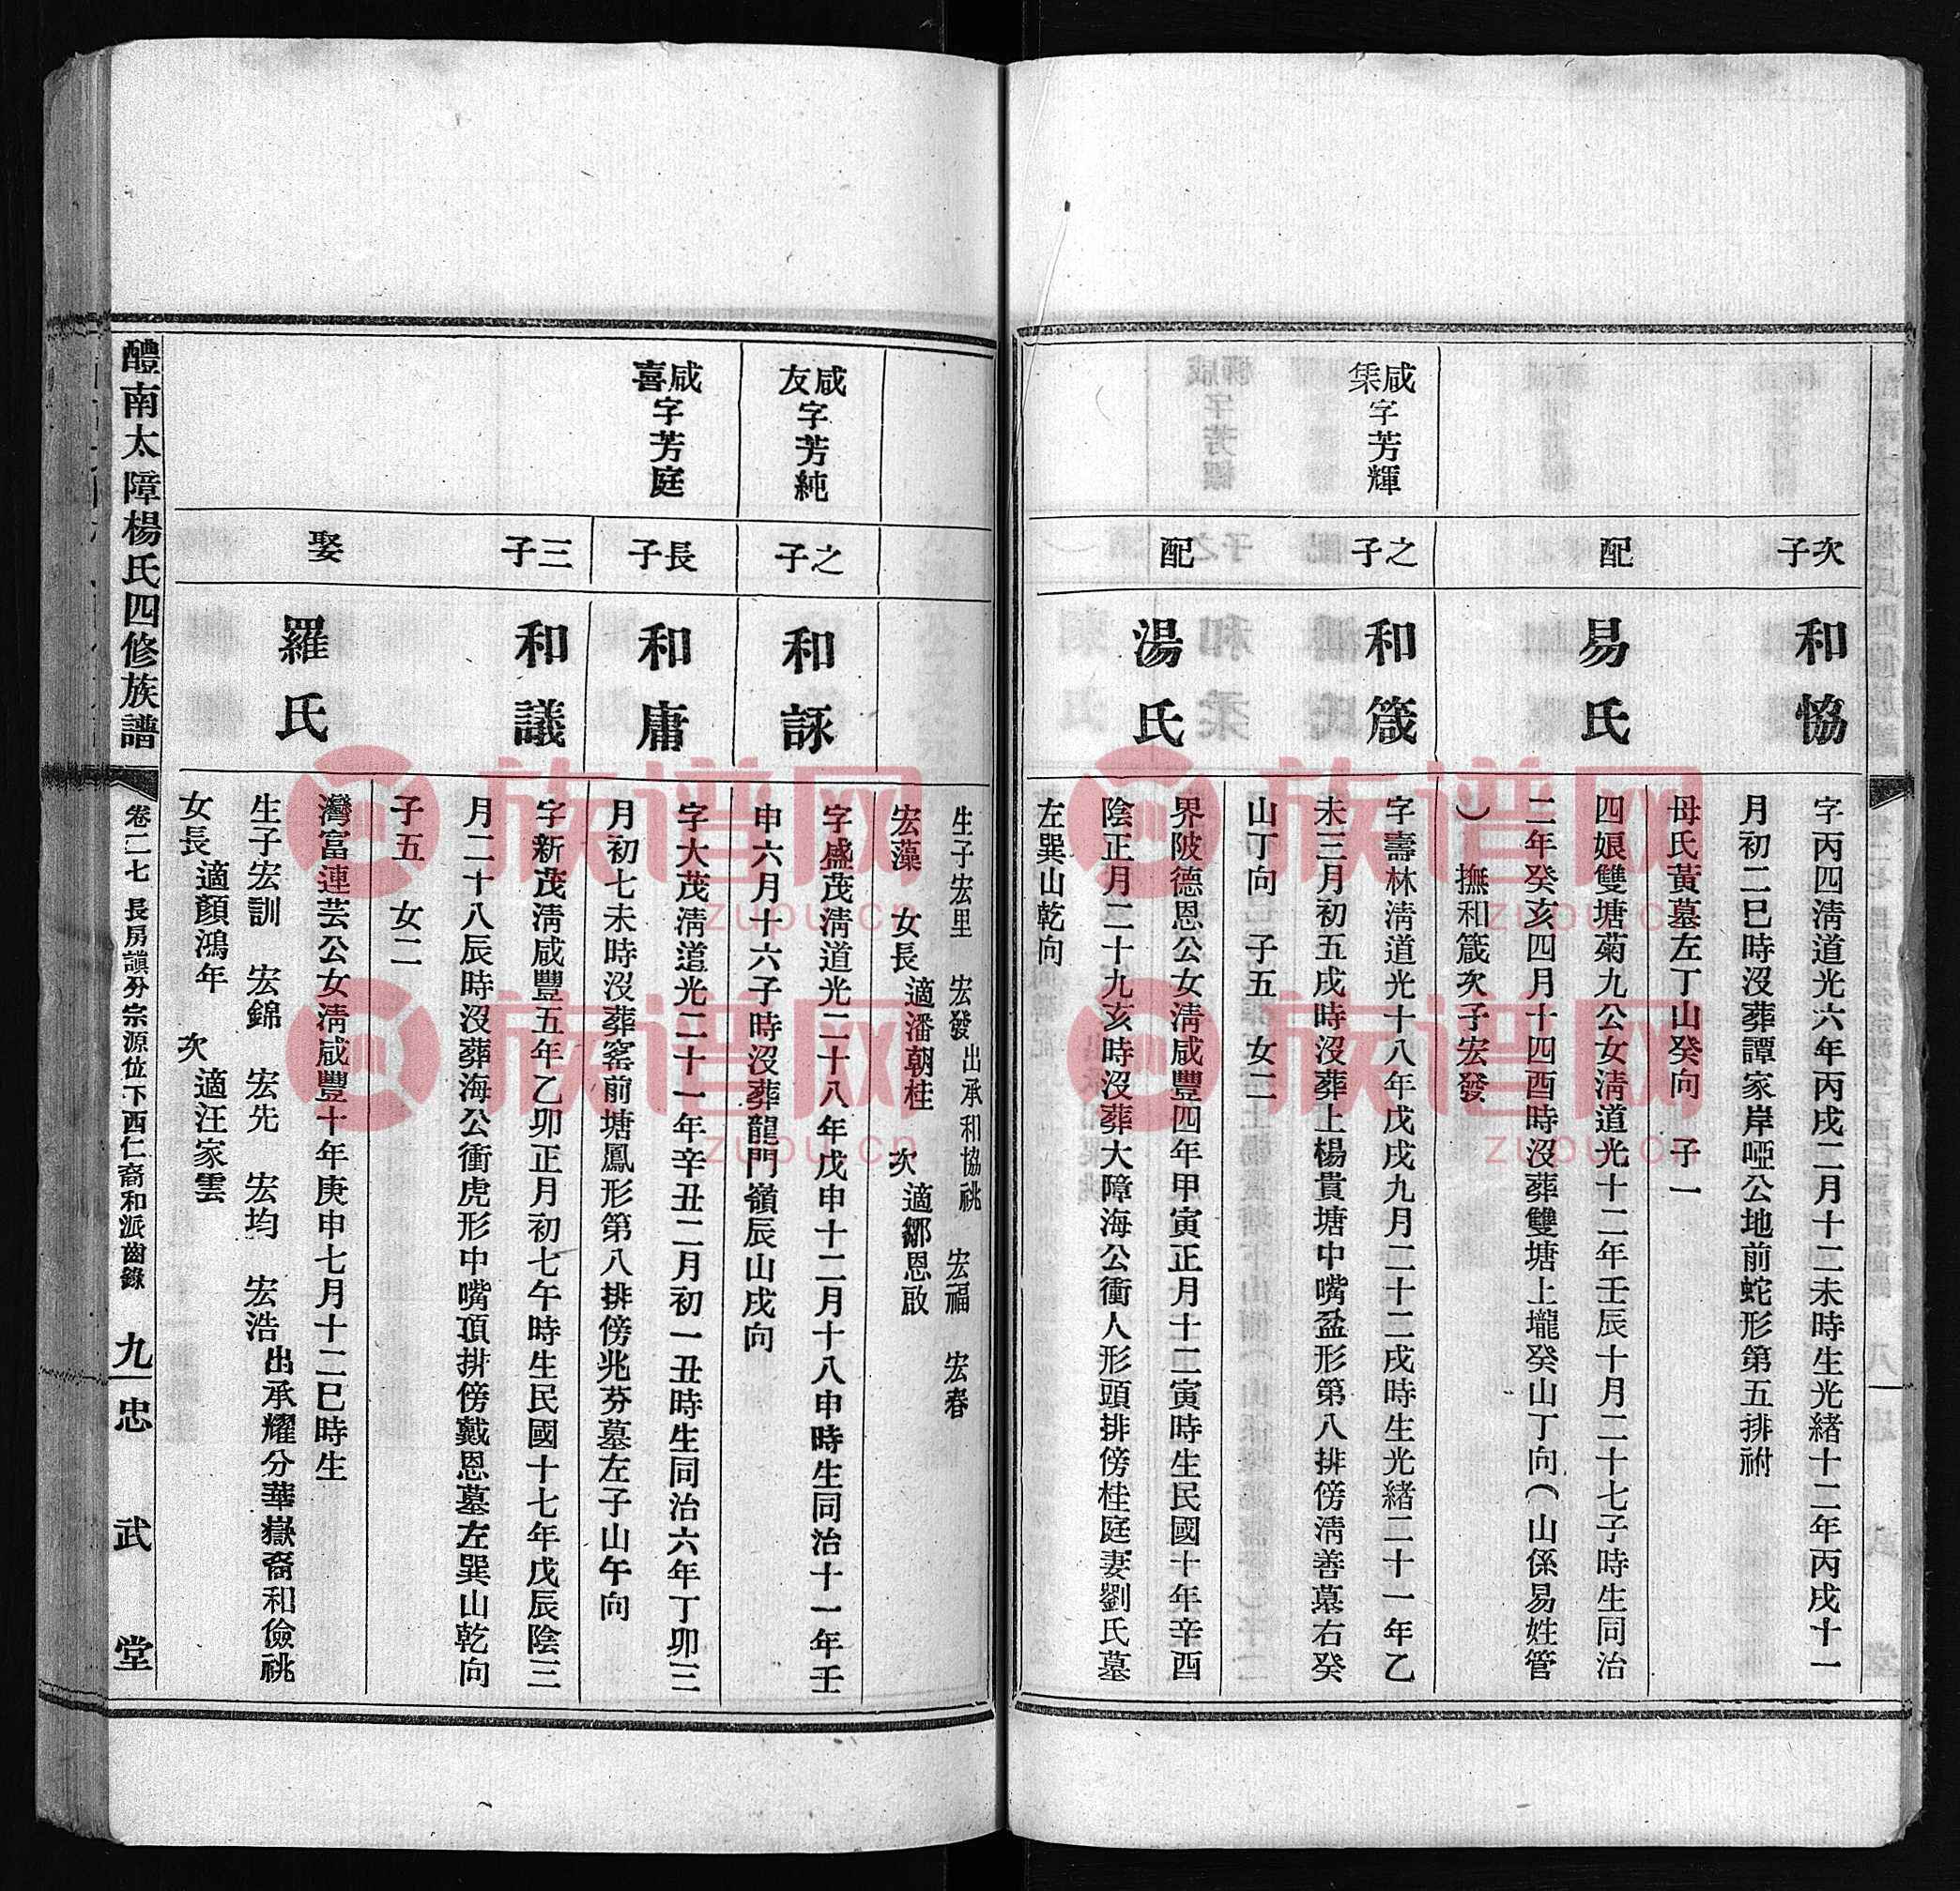 次子
和協
字丙四清道光六年丙戌二月十二未時生光緒十二年丙戌十一
月初二巳時沒葬譚家岸啞公地前蛇形第五排祔
母氏黃墓左丁山癸向 子一
配
易氏
四娘雙塘菊九公女清道光十二年壬辰十月二十七子時生同治
二年癸亥四月十四酉時沒葬雙塘上壠癸山丁向(山係易姓管
) 撫和箴次子宏發
咸
字芳輝
之子
和箴
字壽林清道光十八年戊戌九月二十二戌時生光緒二十一年乙
未三月初五戌時沒葬上楊貫塘中嘴盆形第八排傍清善墓右癸
山丁向 子五 女二
配
湯氏
界陂德恩公女清咸豐四年甲寅正月十二寅時生民國十年辛酉
陰正月二十九亥時沒葬大障海公衝人形頭排傍桂庭妻劉氏墓
左巽山乾向
生子宏里 宏發出承和協祧 宏福 宏春
宏藻 女長適潘朝桂 次適鄒恩啟
咸友字芳純
之子
和詠
字盛茂清道光二十八年戊申十二月十八申時生同治十一年壬
申六月十六子時沒葬龍門嶺辰山戌向
咸喜字芳庭
長子
和庸
字大茂清道光二十一年辛丑二月初一丑時生同治六年丁卯三
月初七未時沒葬窰前塘鳳形第八排傍兆芬墓左子山午向
三子
和議
字新茂清咸豐五年乙卯正月初七午時生民國十七年戊辰陰三
月二十八辰時沒葬海公衝虎形中嘴頂排傍戴恩墓左巽山乾向
子五 女二
娶
羅氏
灣富連芸公女清咸豐十年庚申七月十二巳時生
生子宏訓 宏錦 宏先 宏均 宏浩出承耀分華嶽裔和儉祧
女長適顏鴻年 次適汪家雲
醴南太障楊氏四修族譜
卷二七 長房謓分宗源位下西仁裔和派齒錄
九
忠武堂
族谱网
zupu.cn
族谱网
zupu.cn
族谱网
zupu.cn
族谱网
zupu.cn